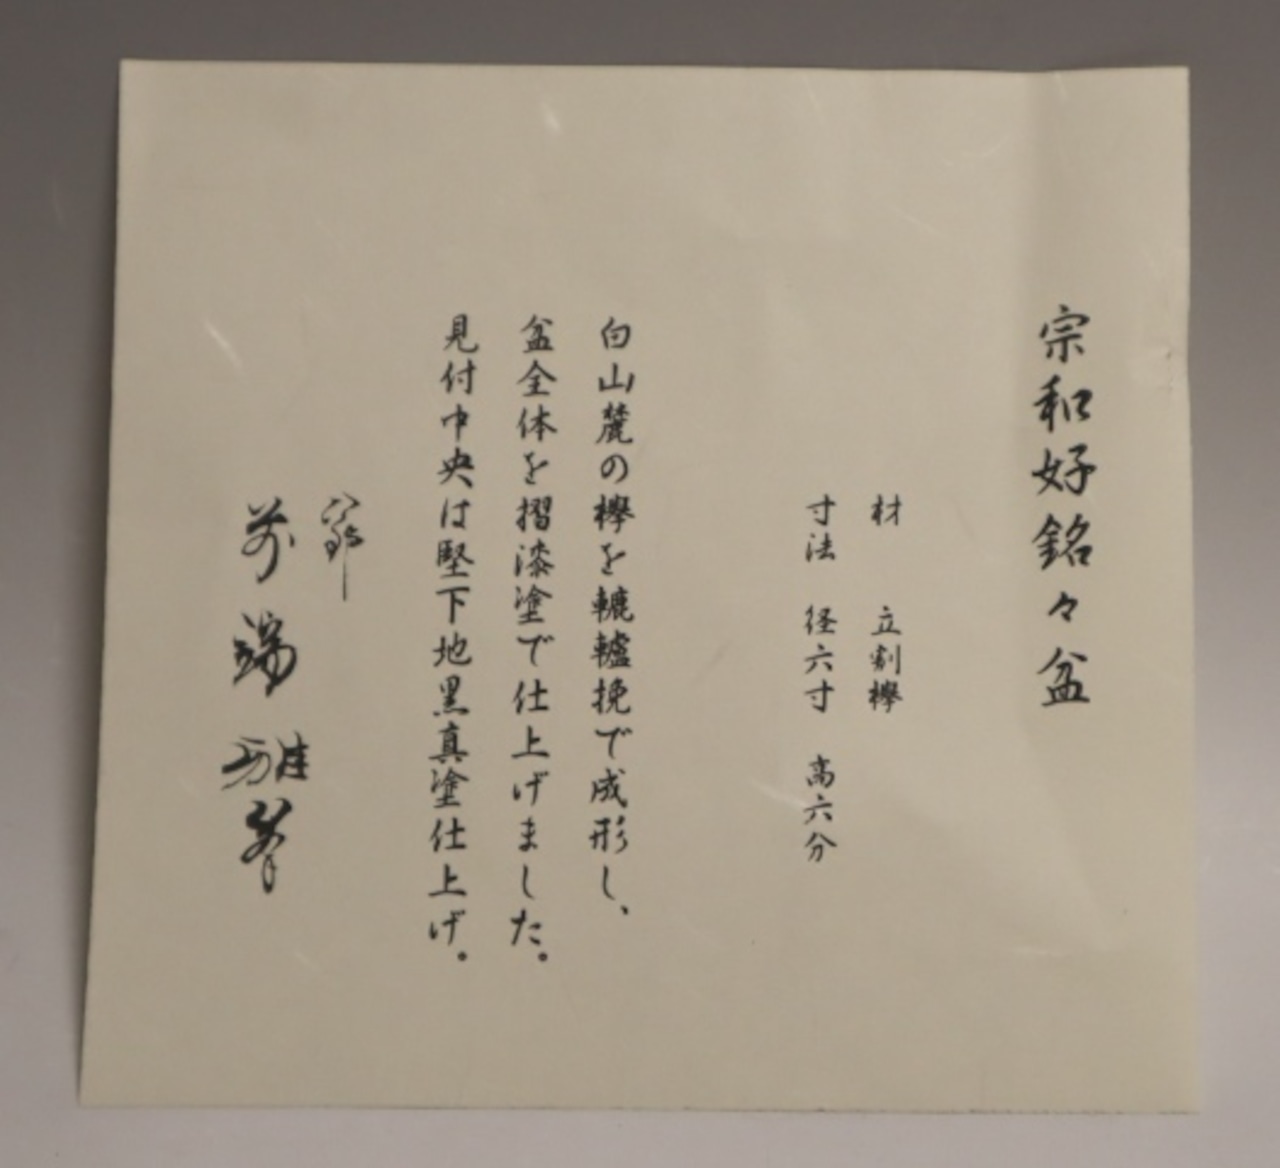 宗和好銘々盆
材　立割欅
寸法　径六寸　高六分
白山麓の欅を轆轤挽で成形し、
盆全体を摺漆塗で仕上げました。
見付中央は堅下地黒真塗仕上げ。
前端雅峯